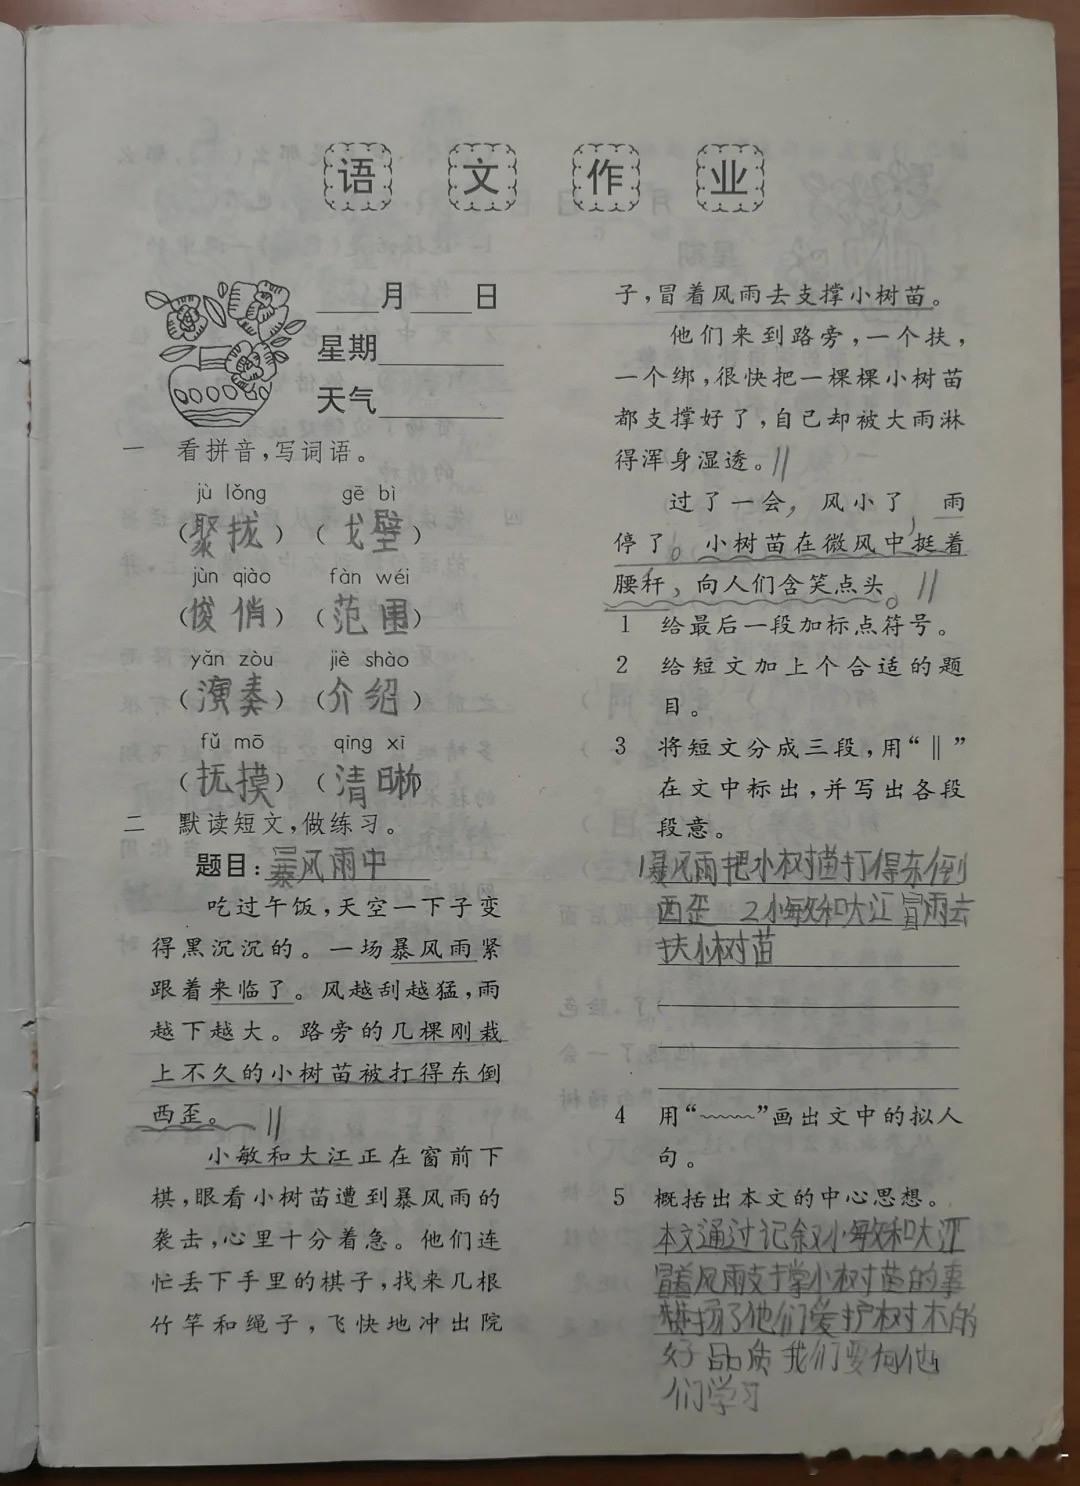 语 文 作 业
____月____日
星期________
天气________
一 看拼音,写词语。
jù lǒng gē bì
(聚拢) (戈壁)
jùn qiào fàn wéi
(俊俏) (范围)
yǎn zòu jiè shào
(演奏) (介绍)
fǔ mō qīng xī
(抚摸) (清晰)
二 默读短文,做练习。
题目:暴风雨中
吃过午饭,天空一下子变
得黑沉沉的。一场暴风雨紧
跟着来临了。风越刮越猛,雨
越下越大。路旁的几棵刚栽
上不久的小树苗被打得东倒
西歪。‖
小敏和大江正在窗前下
棋,眼看小树苗遭到暴风雨的
袭击,心里十分着急。他们连
忙丢下手里的棋子,找来几根
竹竿和绳子,飞快地冲出院
子,冒着风雨去支撑小树苗。
他们来到路旁,一个扶,
一个绑,很快把一棵棵小树苗
都支撑好了,自己却被大雨淋
得浑身湿透。‖
过了一会,风小了,雨
停了。小树苗在微风中挺着
腰杆,向人们含笑点头。‖
1 给最后一段加标点符号。
2 给短文加上个合适的题
目。
3 将短文分成三段,用“‖”
在文中标出,并写出各段
段意。
1暴风雨把小树苗打得东倒
西歪 2小敏和大江冒雨去
扶小树苗
4 用“﹏﹏”画出文中的拟人
句。
5 概括出本文的中心思想。
本文通过记叙小敏和大江
冒着风雨支撑小树苗的事
赞扬了他们爱护树木的
好品质 我们要向他
们学习